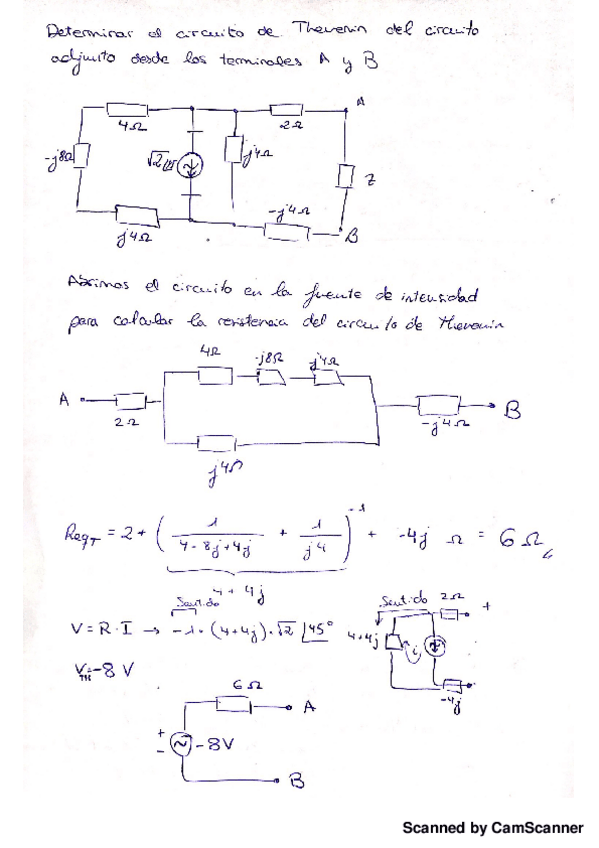 Determinar el circuito de Thevenin del circuito
adjunto desde los terminales A y B
A
4Ω
2Ω
-j8Ω
√2
j4Ω
Z
j4Ω
-j4Ω
B
Abrimos el circuito en la fuente de intensidad
para calcular la resistencia del circuito de Thevenin
4Ω
-j8Ω
j4Ω
A
2Ω
B
-j4Ω
j4Ω
ReqT = 2 + ( 1 / (4-8j+4j) + 1 / j4 )^-1 + -4j Ω = 6 Ω
4 + 4j
Sentido
V = R · I → -1 · (4+4j) · √2 ∠45°
VTH = -8 V
Sentido 2Ω +
4+4j
i
-4j
6Ω
A
+
-
-8V
B
Scanned by CamScanner